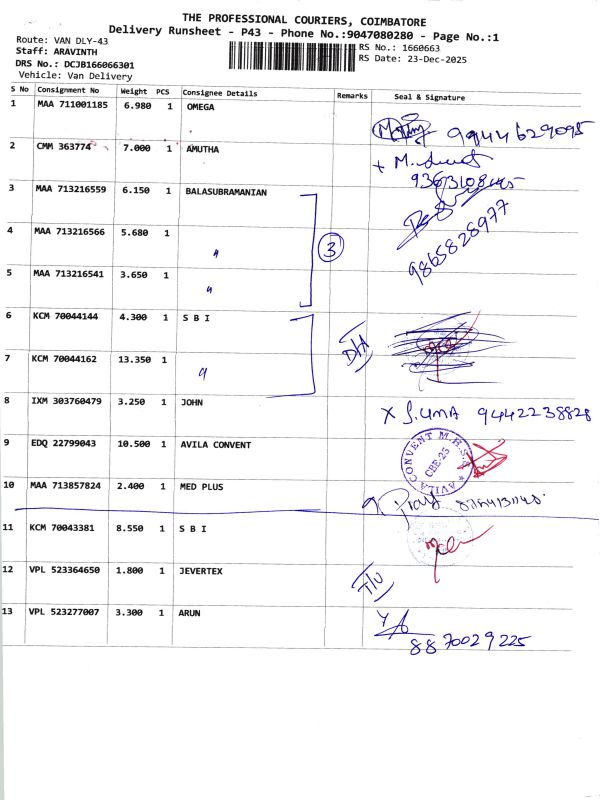 THE PROFESSIONAL COURIERS, COIMBATORE
Delivery Runsheet - P43 - Phone No.:9047080280 - Page No.:1
Route: VAN DLY-43
RS No.: 1660663
Staff: ARAVINTH
RS Date: 23-Dec-2025
DRS No.: DCJB166066301
Vehicle: Van Delivery
S No Consignment No Weight PCS Consignee Details Remarks Seal & Signature
1 MAA 711001185 6.980 1 OMEGA 9944629095
2 CMM 363774 7.000 1 AMUTHA
3 MAA 713216559 6.150 1 BALASUBRAMANIAN
4 MAA 713216566 5.680 1 " 3 9865828977
5 MAA 713216541 3.650 1 "
6 KCM 70044144 4.300 1 S B I
7 KCM 70044162 13.350 1 "
8 IXM 303760479 3.250 1 JOHN X S.UMA 9442238828
9 EDQ 22799043 10.500 1 AVILA CONVENT AVILA CONVENT M.H.S.S. CBE-25
10 MAA 713857824 2.400 1 MED PLUS
11 KCM 70043381 8.550 1 S B I
12 VPL 523364650 1.800 1 JEVERTEX
13 VPL 523277007 3.300 1 ARUN
8870029225